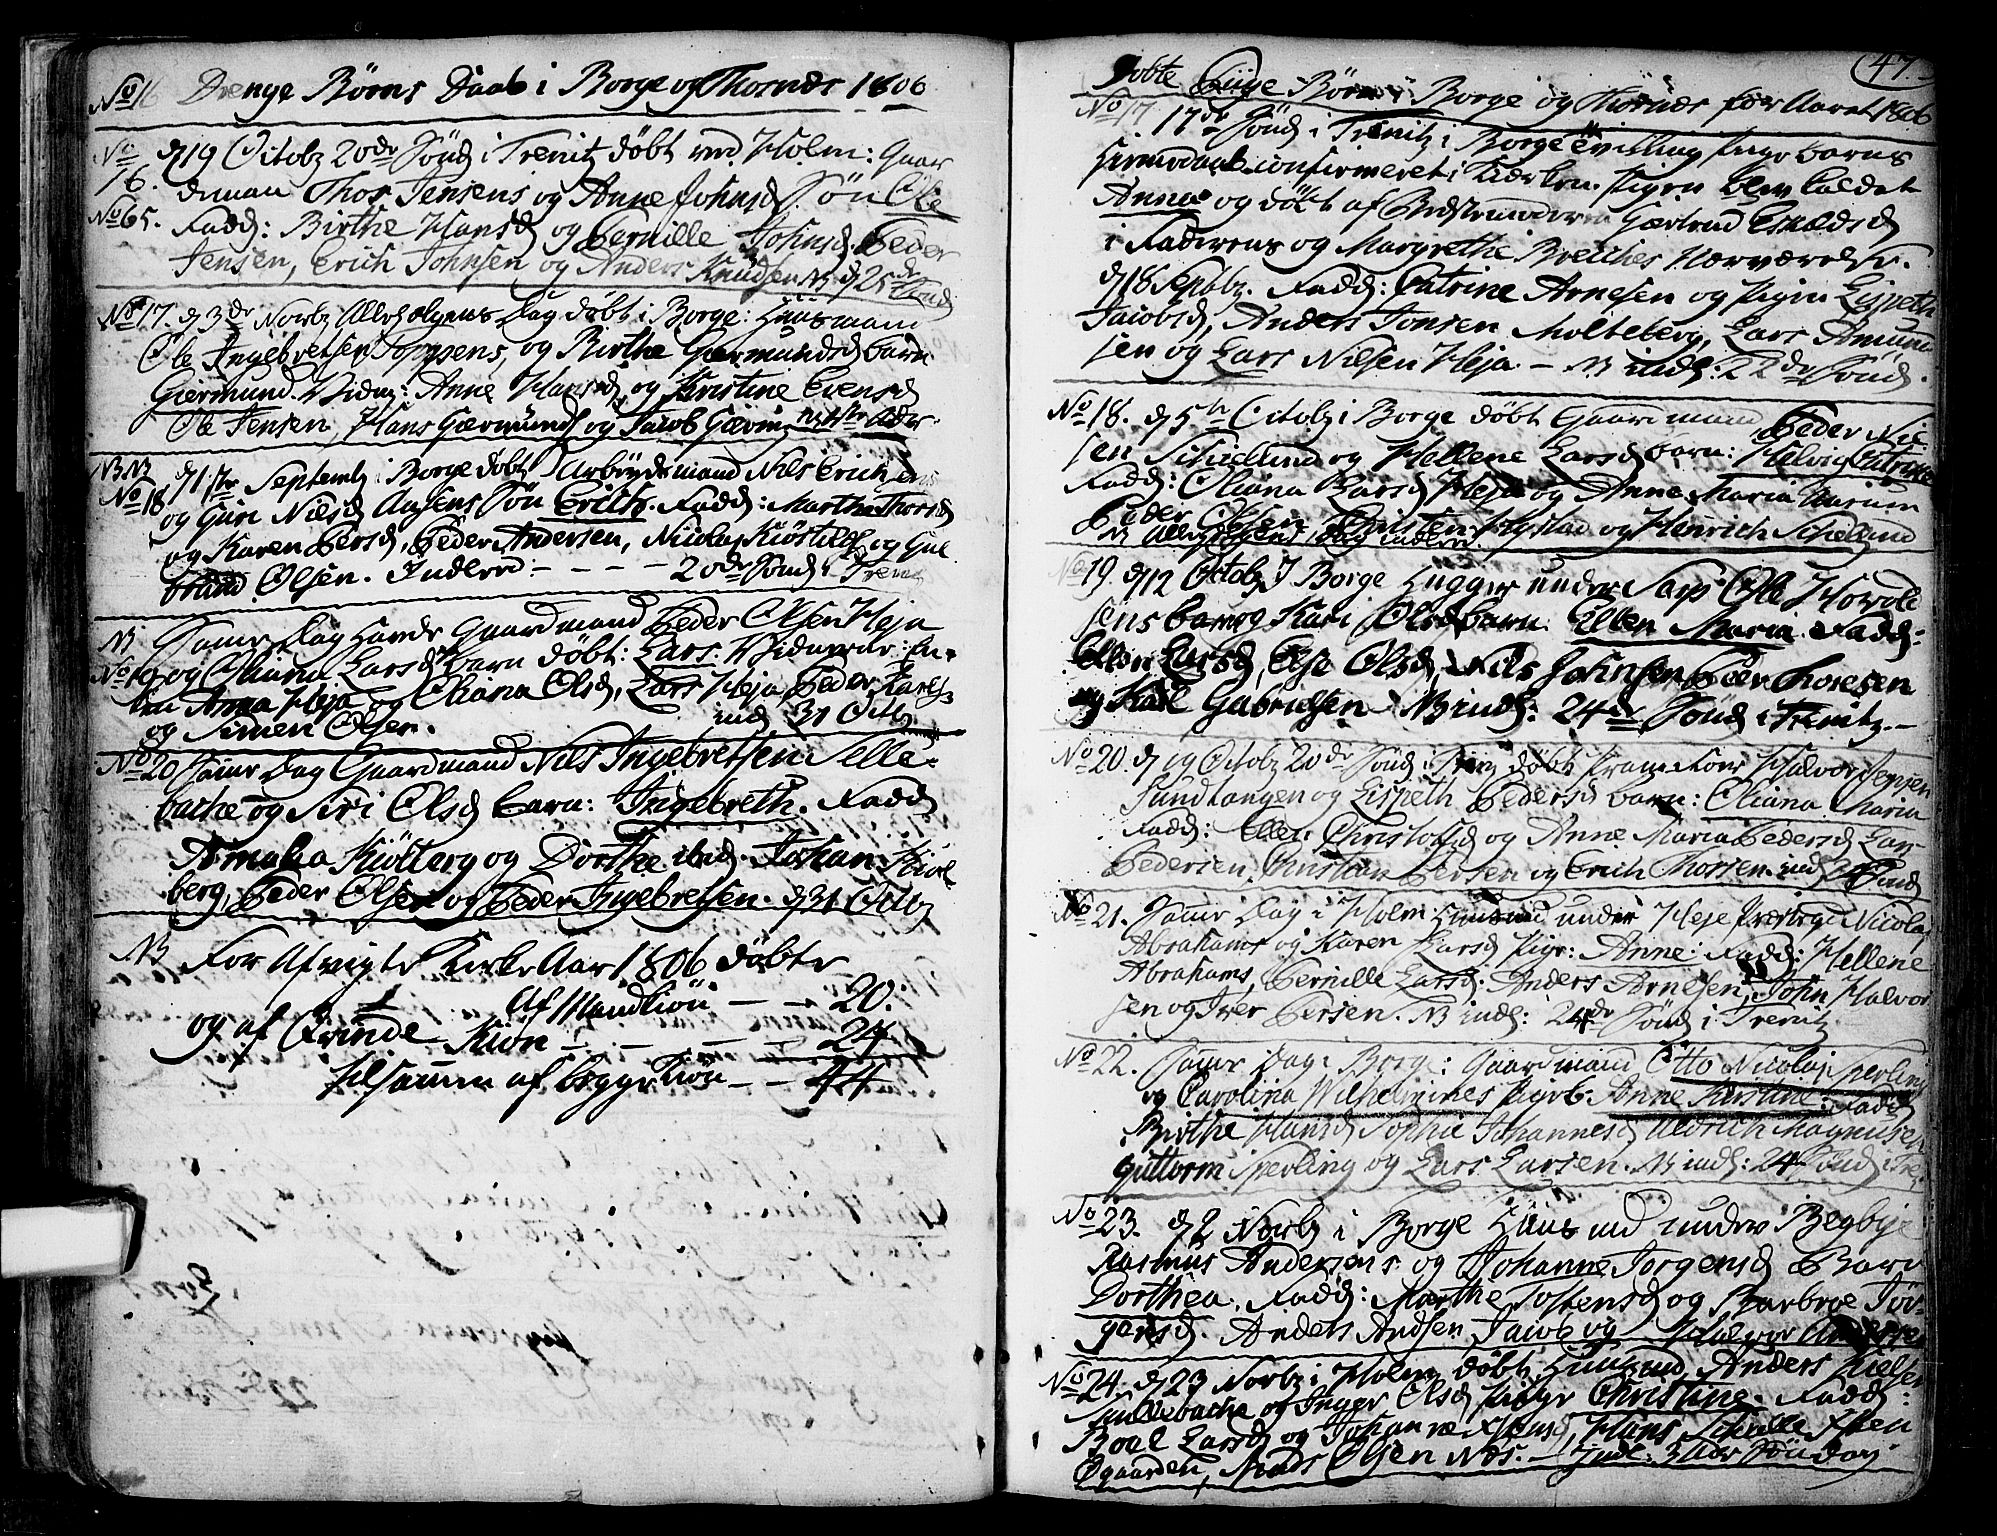 No 16 Drenge Börns Daab i Borge og Thorsnæs 1806
No 16. d 19 Octobr 20de Sönd i Trenitz döbt ved Holm: Gaar
dman Thor Jensens og Anne Johnsd Sön Ole
No 65. Fadd: Birthe Hansd og Pernille Johnsd. Peder
Jensen, Erich Johnsen og Anders Knudsen NB d 25de Sönd
No 17. d 3de Novbr Allehelgens Dag döbt i Borge: Huusmand
Ole Ingebretsen Toppsens, og Birthe Giærmundsd barn
Giermund. Vidn: Anne Hansd og Kristine Evensd
Ole Jensen, Hans Giærmunds og Jacob
NB NB
No 18 d Septembr i Borge döbt Arbeydsmand Nils Erichsens
og Guri Nilsd Aasens Sön Erich. Fadd: Marthe Thorsd
og Karen Persd, Peder Andersen, Nicolay Kiöstels og Gul
brand Olsen. Indleed - - - - 20de Sönd i Trenit
NB Samme Dag Havde Gaardmand Peder Olsen Heja
No 19 og Oliana Larsd barn döbt: Lars. Vidnerne: En-
ken Anna Heja og Oliana Olsd, Lars Heja Peder Karls
og Simen Olsen. ind 31 Octb
No 20 Samme Dag Gaardmand Nils Ingebretsen Selle-
bache og Siri Olsd barn: Ingebreth. Fadd
Amalia Kiölberg og Dorthe ibid. Johan Kiöl
berg, Peder Olsen og Peder Ingebretsen. d 31 Octb
NB For Afvigte Kirke Aar 1806 döbte
Af Mandkiön - - 20.
og af Qvinde Kiön - - - - 24
tilsammen af begge Kiön - - 44
47.
Döbte Piige Börn i Borge og Thorsnæs for Aaret 1806
No 17 17de Sönd i Trenitz i Borge Pige barns
hiemmedaab confirmeret i Kirken. Pigen blev kaldet
Anna og döbt af Bedstemoderen Giærtrud
i Faderens og Margrethe Nærværelse.
d 18 Septbr. Fadd: Catrine Arnesen og Pigen Lispeth
Jacobsd, Anders Jonsen Molteberg, Lars Amund
sen og Lars Nielsen Heja - NB indl: 22de Sönd.
No 18. d 5te Octobr i Borge döbt Gaardmand Peder Nie
sen Schielund og Hellene Larsd barn: Helvig Catrine
Fadd: Oliana Larsd Heja og Anne Maria
Peder Olsen Christen Hystad og Henrich Schelund
NB Allehelgens Dag indleed.
No 19. d 12 Octobr I Borge Hugger under Sarp Ole Harold
sens og Kari Olsd barn Ellen Maria. Fadd:
Ellen Larsd, Else Olsd, Nils Johnsen Peder Thoresen
og Karl Gabrielsen NB indl: 24de Sönd i Trenitz. -
No 20. d 19 Octobr 20de Sönd i Trenitz döbt Halvor Jensen
Sundtangen og Lispeth Pedersd barn: Oliana Maria
Fadd: Ellen Christofsd og Anne Maria Pedersd Lar-
Pedersen, Christian Persen og Erich Thorsen. ind 24 Sönd
No 21. Samme Dag i Holm: Huusmd under Heje Nicolay
Abrahams og Karen Larsd Pige: Anne: Fadd: Hellene
Abrahams, Pernille Larsd: Anders Arnesen, John Halvor
sen og Iver Persen. NB indl: 24de Sönd i Trenitz
No 22. Samme Dag i Borge: Gaardmand Otto Nicolaj Sperling
og Carolina Wilhelmines Pigeb. Anne Kirstine: Fadd
Birthe Hansd Sophie Johannesd Aldrich Magnusen
Guttorm Sperling og Lars Larsen. NB indl: 24 Sönd i Tre
No 23. d 2 Novbr i Borge Huusmd under Begbye
Rasmus Andersens og Johanne Jorgensd Barn
Dorthea. Fadd: Marthe Tostensd og Barbroe Jör-
gensd. Anders Andsen Jacob og Halvor
No 24. d 23 Novbr i Holm döbt Huusmd Anders Kielsen
Sullebache og Inger Olsd Pige Christine. Fadd:
Boel Larsd og Johanne Hansd, Hans
Ögaarden, Mads Olsen Næs. - Indl: 3 Söndag